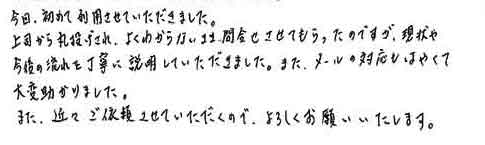 今回、初めて利用させていただきました。
上司から丸投げされ、よくわからないまま問合せさせてもらったのですが、現状や
今後の流れを丁寧に説明していただきました。また、メールの対応もはやくて
大変助かりました。
また、近々ご依頼させていただくので、よろしくお願いいたします。